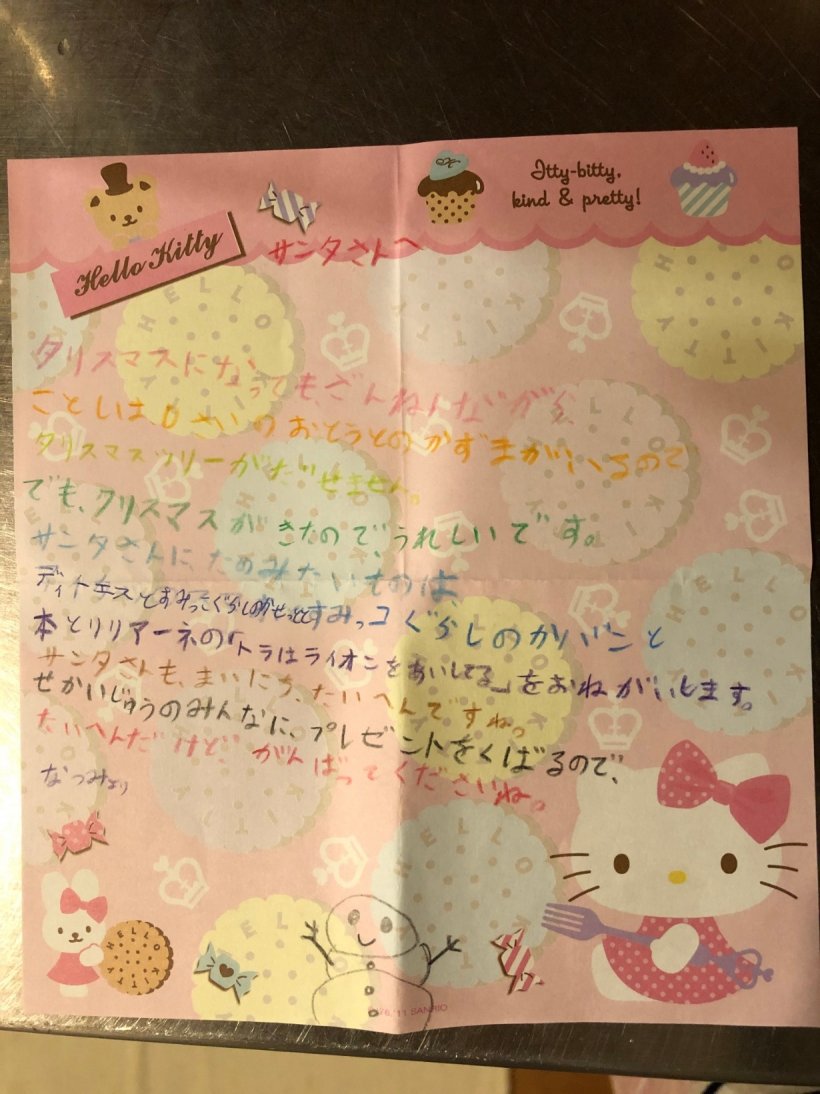 Itty-bitty,
kind & pretty!
Hello Kitty
サンタさんへ
クリスマスになっても、ざんねんながら、
ことしは0さいのおとうとのかずまがいるので
クリスマスツリーがだせません。
でも、クリスマスがきたので、うれしいです。
サンタさんに、たのみたいものは、
すみっコぐらしのかりいごと
本とリリアーネの「トラはライオンをあいしてる」をおねがいします。
サンタさんも、まいにち、たいへんですね。
せかいじゅうのみんなに、プレゼントをくばるので、
たいへんだけど、がんばってくださいね。
なつみより
HELLO KITTY
'76,'11 SANRIO